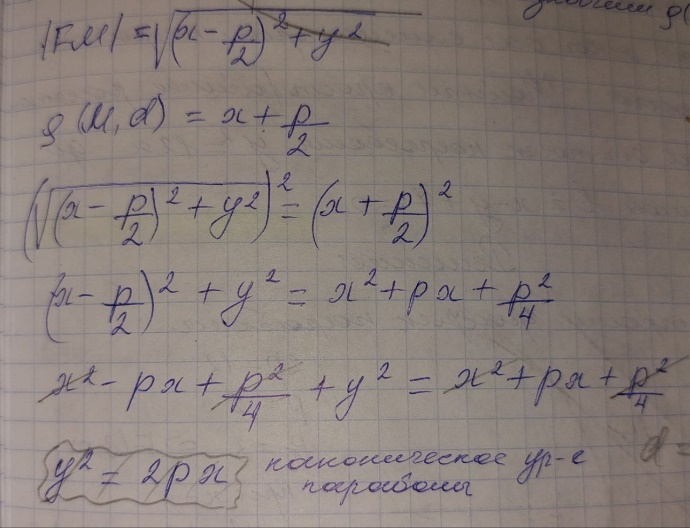 |FM| = √((x - p/2)² + y²)
ρ(M, d) = x + p/2
(√((x - p/2)² + y²))² = (x + p/2)²
(x - p/2)² + y² = x² + px + p²/4
x² - px + p²/4 + y² = x² + px + p²/4
d =
y² = 2px каноническое ур-е
параболы